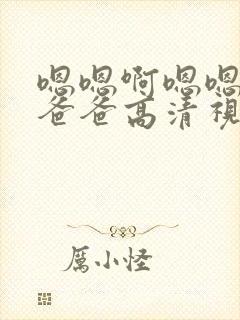 嗯嗯啊嗯嗯
爸爸高清視
厲小怪